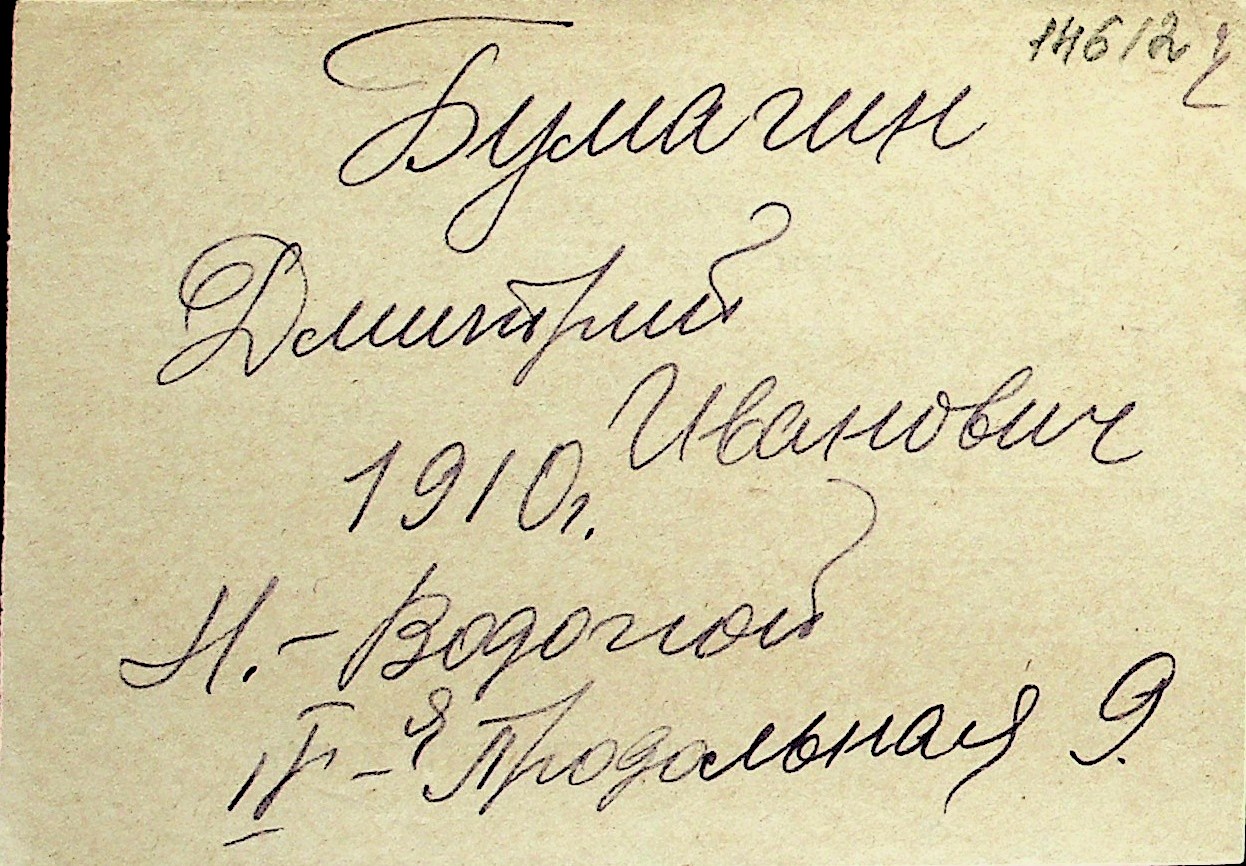 14612 ч
Бумагин
Дмитрий
Иванович
1910г.
Н.-Водопой
IV-я Продольная 9.